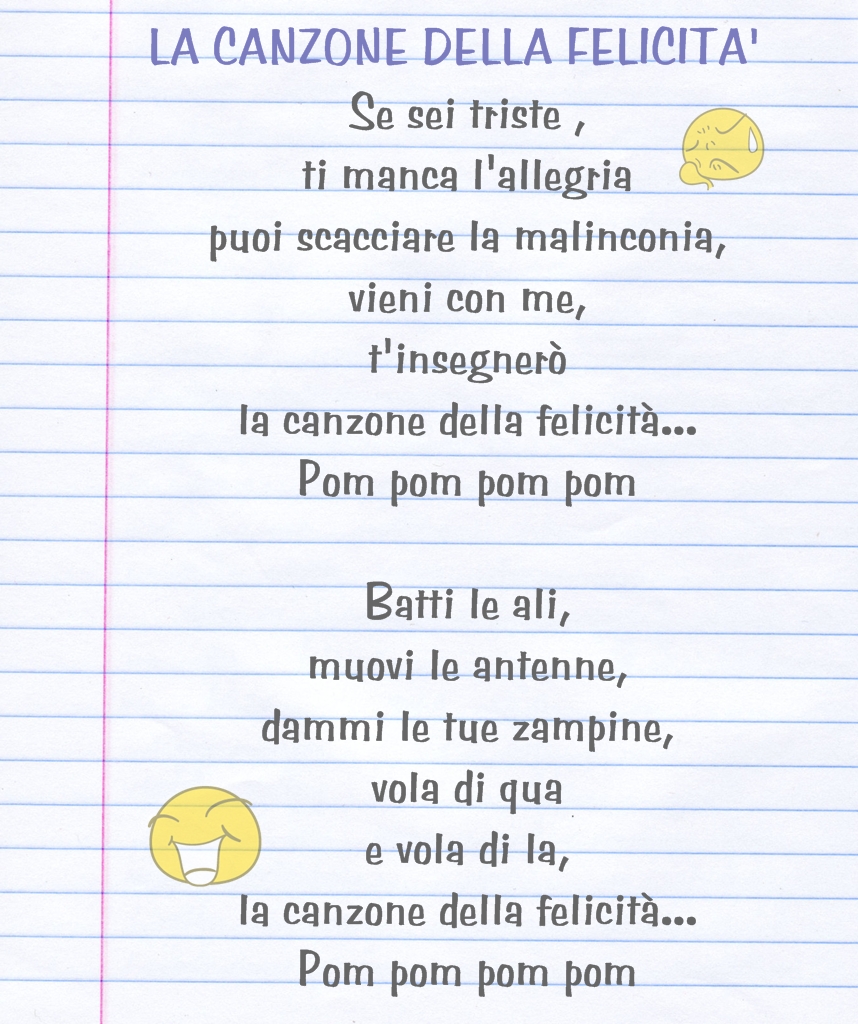 LA CANZONE DELLA FELICITA'
Se sei triste ,
ti manca l'allegria
puoi scacciare la malinconia,
vieni con me,
t'insegnerò
la canzone della felicità...
Pom pom pom pom
Batti le ali,
muovi le antenne,
dammi le tue zampine,
vola di qua
e vola di la,
la canzone della felicità...
Pom pom pom pom